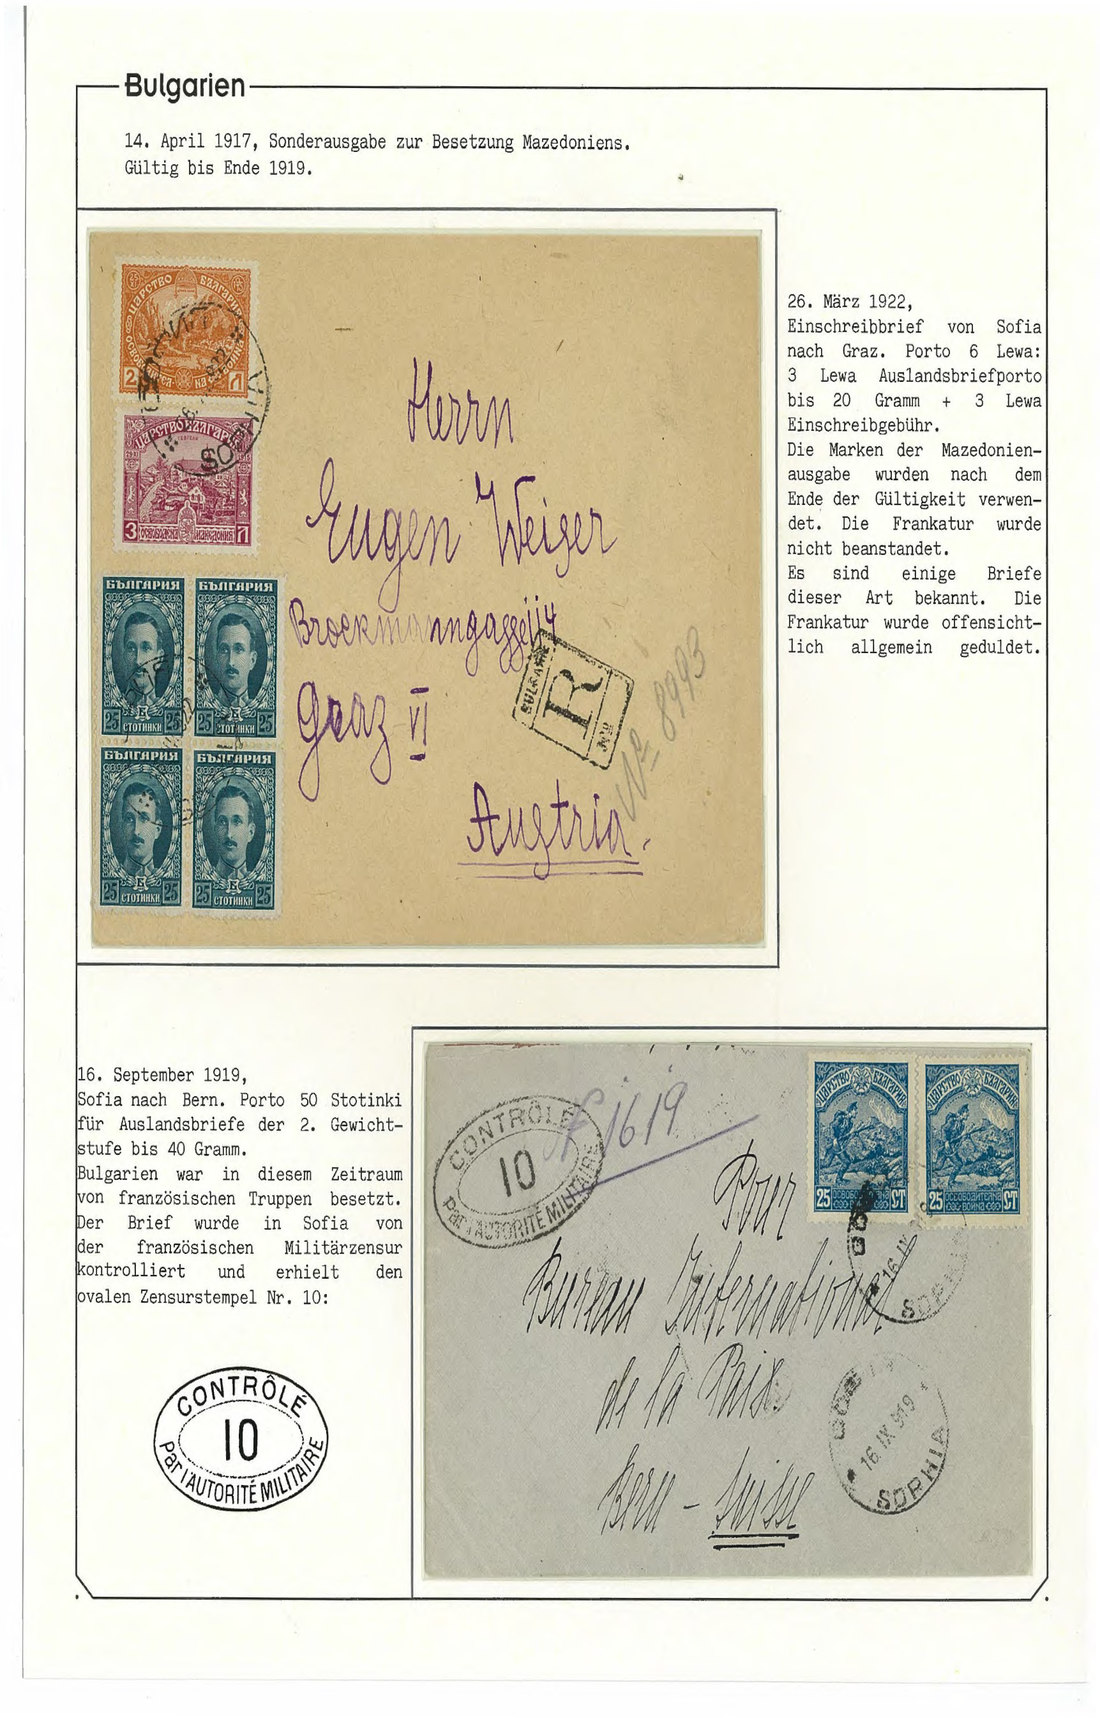 Bulgarien
14. April 1917, Sonderausgabe zur Besetzung Mazedoniens.
Gültig bis Ende 1919.
ЦАРСТВО БЪЛГАРИЯ
2
Л
ЦАРСТВО БЪЛГАРИЯ
3
Л
БЪЛГАРИЯ
25 СТОТИНКИ 25
БЪЛГАРИЯ
25 СТОТИНКИ 25
БЪЛГАРИЯ
25 СТОТИНКИ 25
БЪЛГАРИЯ
25 СТОТИНКИ 25
Herrn
Eugen Weiger
Brockmanngasse
Graz VI
Austria.
BULGARIE
R
№ 8993
26. März 1922,
Einschreibbrief von Sofia
nach Graz. Porto 6 Lewa:
3 Lewa Auslandsbriefporto
bis 20 Gramm + 3 Lewa
Einschreibgebühr.
Die Marken der Mazedonien-
ausgabe wurden nach dem
Ende der Gültigkeit verwen-
det. Die Frankatur wurde
nicht beanstandet.
Es sind einige Briefe
dieser Art bekannt. Die
Frankatur wurde offensicht-
lich allgemein geduldet.
16. September 1919,
Sofia nach Bern. Porto 50 Stotinki
für Auslandsbriefe der 2. Gewicht-
stufe bis 40 Gramm.
Bulgarien war in diesem Zeitraum
von französischen Truppen besetzt.
Der Brief wurde in Sofia von
der französischen Militärzensur
kontrolliert und erhielt den
ovalen Zensurstempel Nr. 10:
CONTRÔLÉ
10
Par l'AUTORITÉ MILITAIRE
CONTRÔLÉ
10
Par l'AUTORITÉ MILITAIRE
1619
ЦАРСТВО БЪЛГАРИЯ
25 ОСВОБОДИТЕЛНА СТ
ВОЙНА
ЦАРСТВО БЪЛГАРИЯ
25 ОСВОБОДИТЕЛНА СТ
ВОЙНА
16 IX
SOPHIA
Pour
Bureau International
de la Paix
Bern - Suisse
16 IX 919
SOPHIA